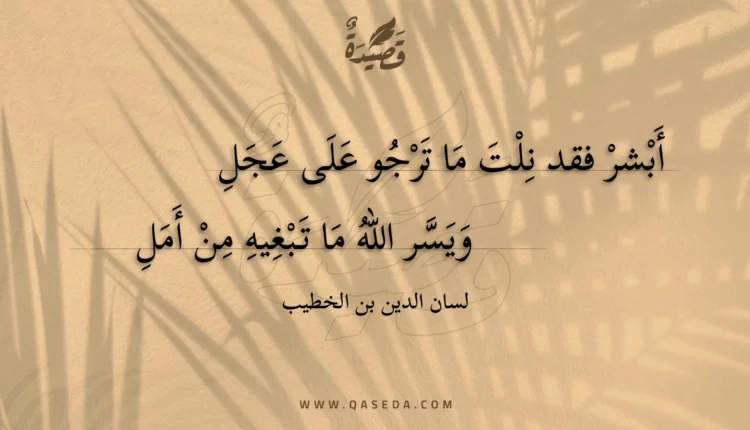 قَصِيْدَةٌ
أَبْشرْ فقد نِلْتَ مَا تَرْجُو عَلَى عَجَلِ
وَيَسَّر اللهُ مَا تَبْغِيهِ مِنْ أَمَلِ
لسان الدين بن الخطيب
WWW.QASEDA.COM